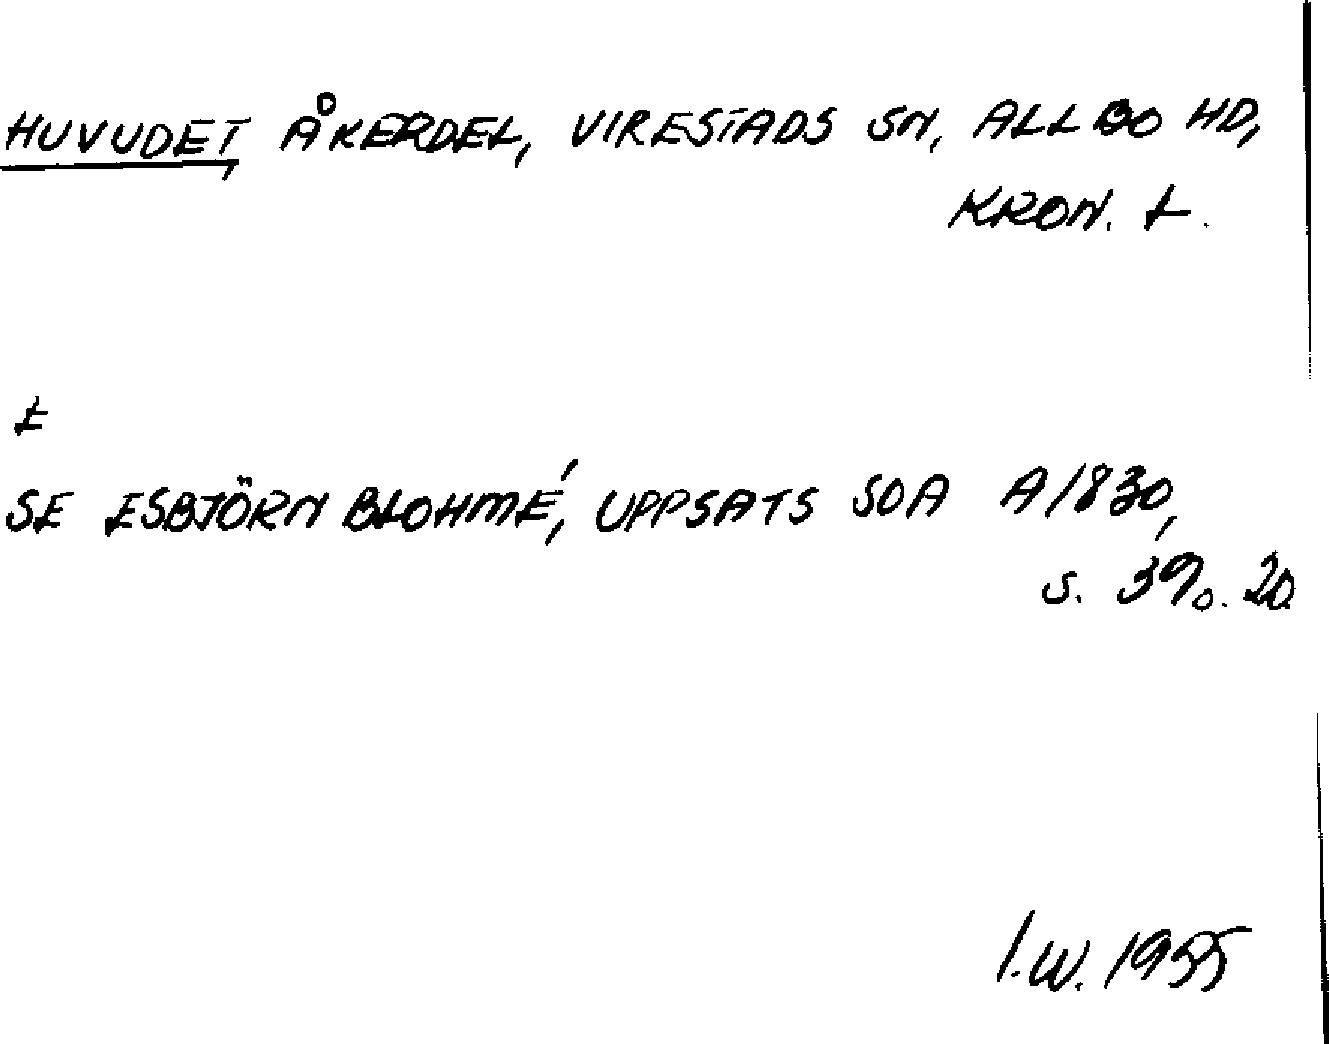 HUVUDET, ÅKERDEL, VIRESTADS SN, ALLBO HD,
KRON. L.
£
SE ESBJÖRN BLOHMÉ, UPPSATS SOA A1830,
s. 39 o. 20.
I.W. 1955